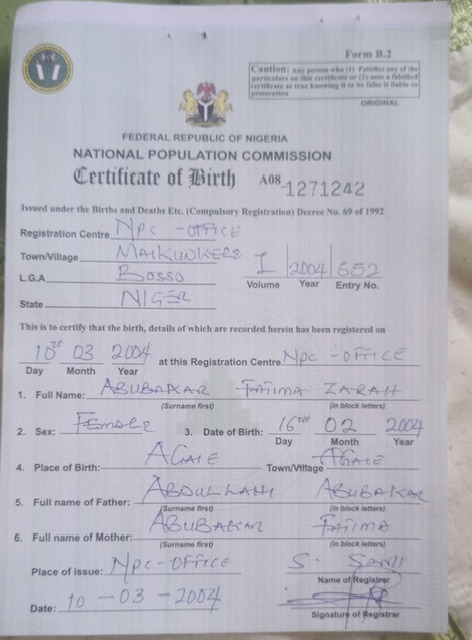 Form B.2
Caution: Any person who (1) Falsifies any of the
particulars on this certificate or (2) uses a falsified
certificate as true knowing it to be false is liable to
prosecution
ORIGINAL
FEDERAL REPUBLIC OF NIGERIA
NATIONAL POPULATION COMMISSION
Certificate of Birth A08 1271242
Issued under the Births and Deaths Etc. (Compulsory Registration) Decree No. 69 of 1992
Registration Centre NPC - OFFICE
Town/Village MAIKUNKELE
L.G.A BOSSO I 2004 652
Volume Year Entry No.
State NIGER
This is to certify that the birth, details of which are recorded herein has been registered on
10th 03 2004 at this Registration Centre NPC - OFFICE
Day Month Year
1. Full Name: ABUBAKAR FATIMA ZARAH
(Surname first) (in block letters)
2. Sex: Female 3. Date of Birth: 16th 02 2004
Day Month Year
4. Place of Birth: AGAIE Town/Village AGAIE
5. Full name of Father: ABDULLAHI ABUBAKAR
(Surname first) (in block letters)
6. Full name of Mother: ABUBAKAR FATIMA
(Surname first) (in block letters)
Place of issue: NPC-OFFICE S.
Name of Registrar
Date: 10 - 03 - 2004
Signature of Registrar